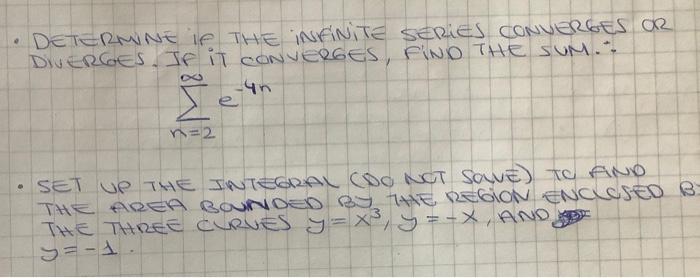 • DETERMINE IF THE INFINITE SERIES CONVERGES OR
DIVERGES. IF IT CONVERGES, FIND THE SUM.:
∞
∑ e^-4n
n=2
• SET UP THE INTEGRAL (DO NOT SOLVE) TO FIND
THE AREA BOUNDED BY THE REGION ENCLOSED B
THE THREE CURVES y = x³, y = -x, AND
y = -1.